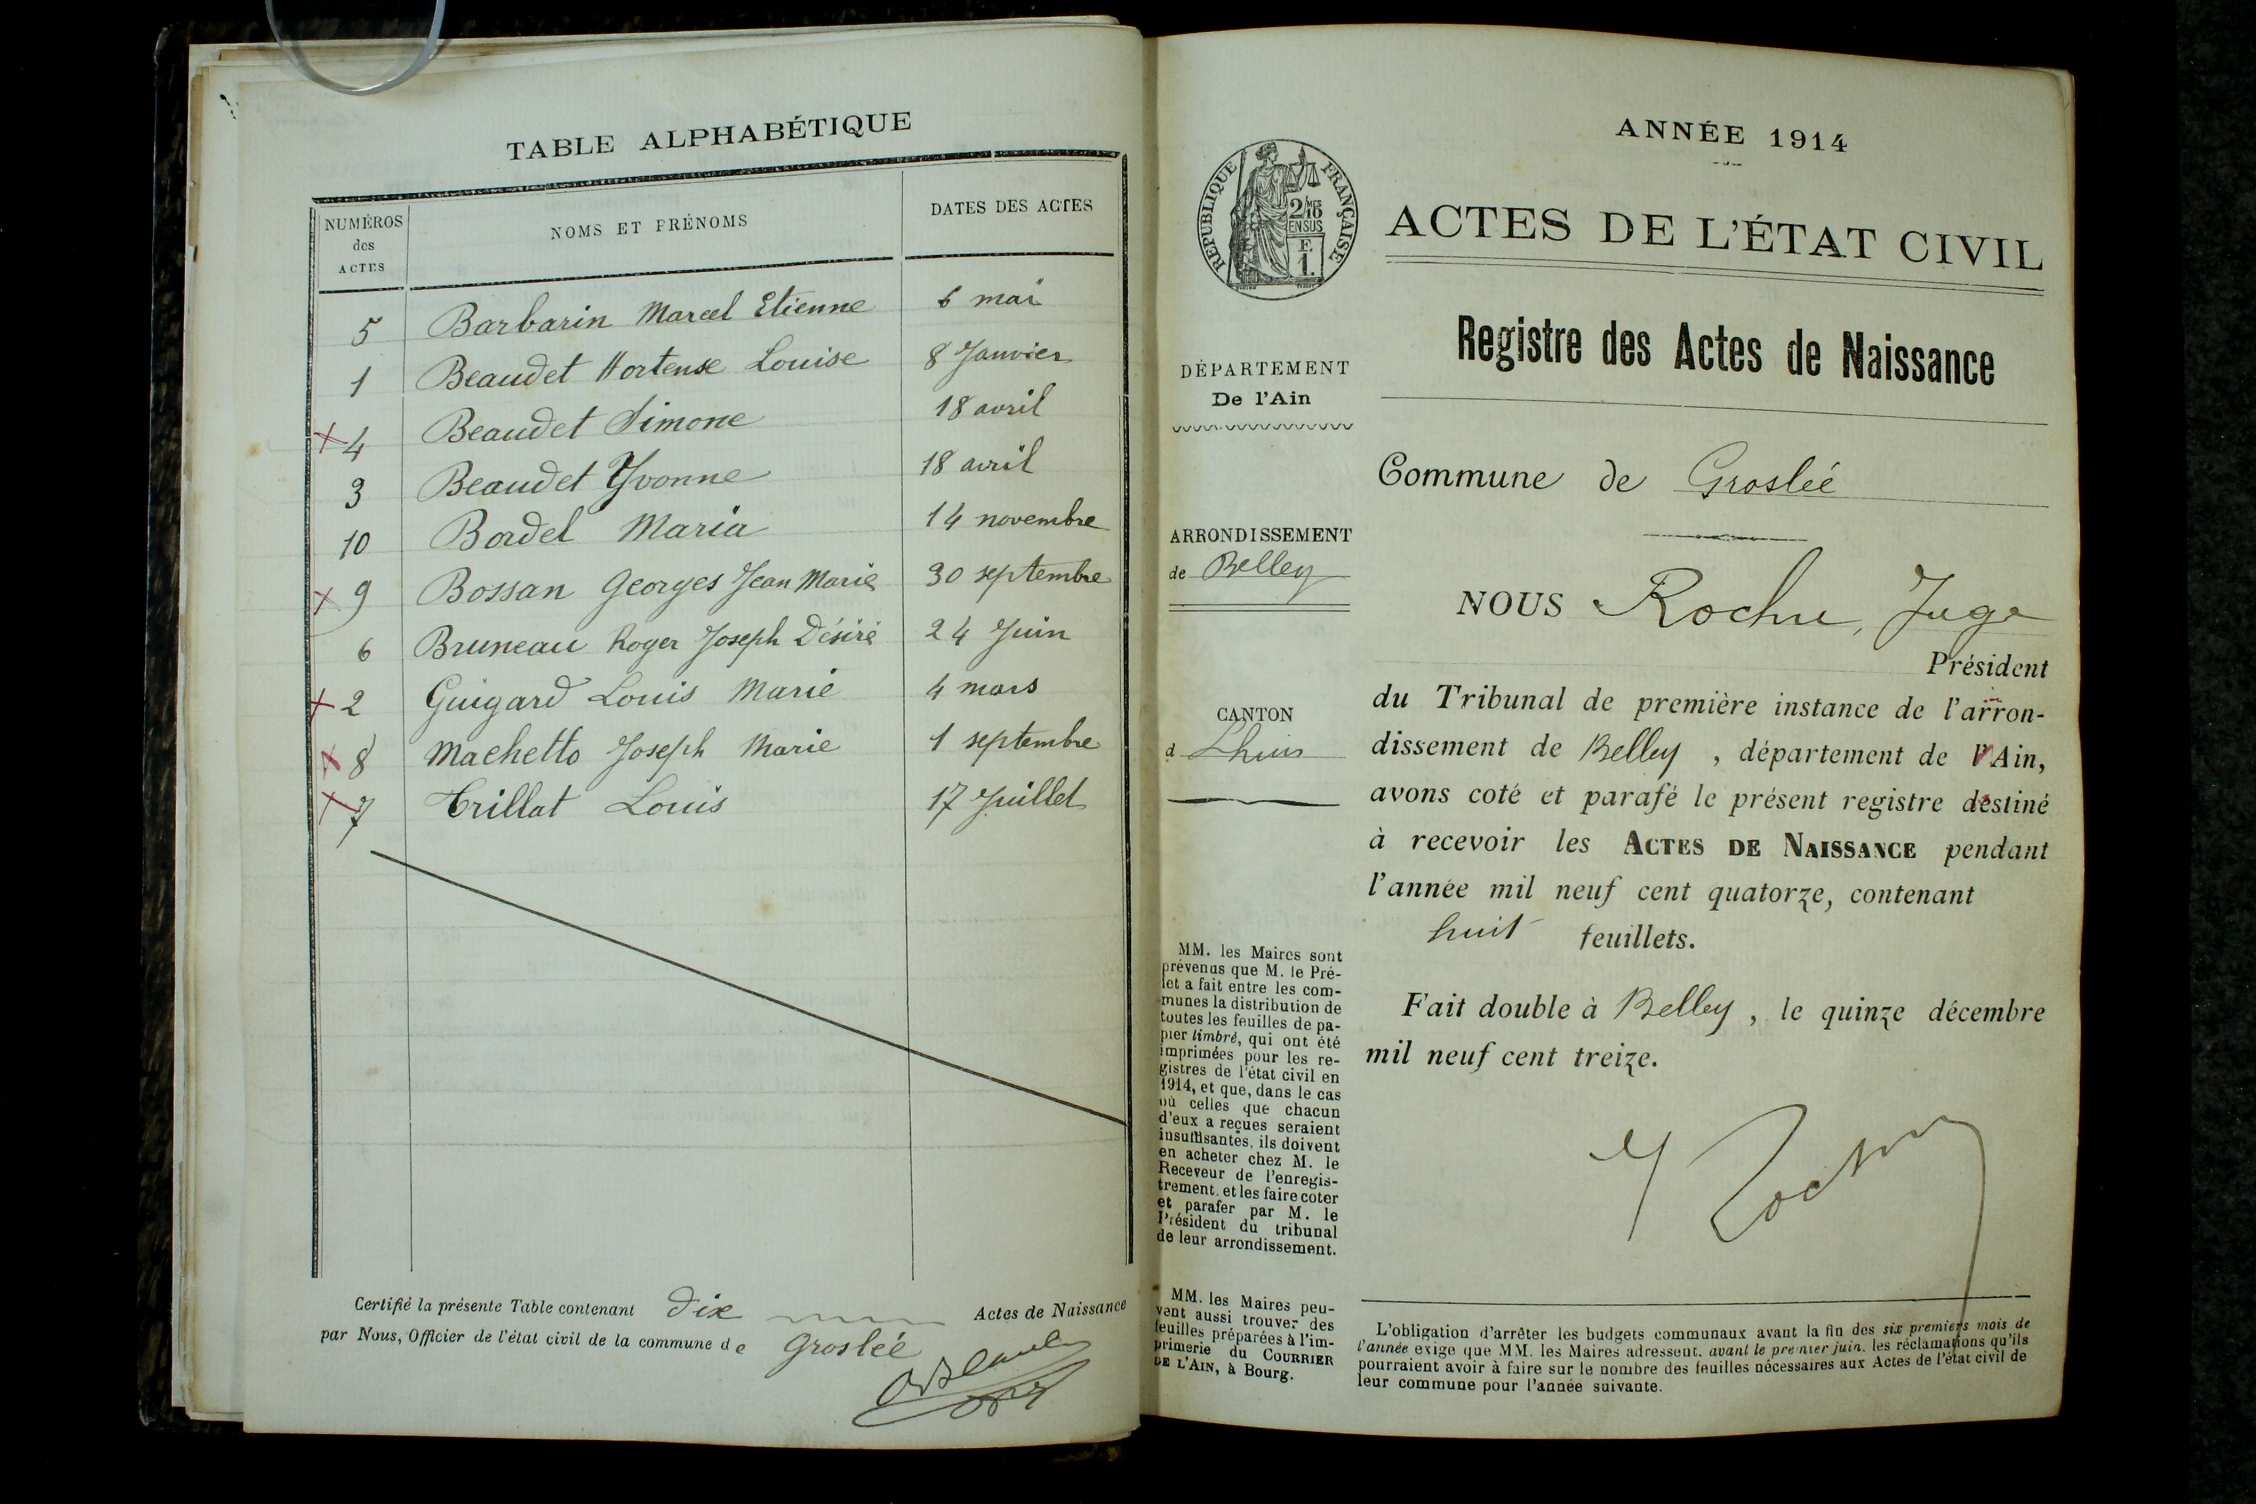 TABLE ALPHABÉTIQUE
NUMÉROS des ACTES
NOMS ET PRÉNOMS
DATES DES ACTES
5 Barbarin Marcel Etienne 6 mai
1 Beaudet Hortense Louise 8 Janvier
4 Beaudet Simone 18 avril
3 Beaudet Yvonne 18 avril
10 Bordel Maria 14 novembre
9 Bossan Georges Jean Marie 30 septembre
6 Bruneau Roger Joseph Désiré 24 Juin
2 Guigard Louis Marie 4 mars
8 Machetto Joseph Marie 1 septembre
7 Trillat Louis 17 Juillet
Certifié la présente Table contenant dix Actes de Naissance
par Nous, Officier de l'état civil de la commune de Groslée
RÉPUBLIQUE FRANÇAISE
2/10 MES
EN SUS
F.
1.
DÉPARTEMENT
De l'Ain
ARRONDISSEMENT
de Belley
CANTON
d Lhuis
MM. les Maires sont
prévenus que M. le Pré-
fet a fait entre les com-
munes la distribution de
toutes les feuilles de pa-
pier timbré, qui ont été
imprimées pour les re-
gistres de l'état civil en
1914, et que, dans le cas
où celles que chacun
d'eux a reçues seraient
insuffisantes, ils doivent
en acheter chez M. le
Receveur de l'enregis-
trement, et les faire coter
et parafer par M. le
Président du tribunal
de leur arrondissement.
MM. les Maires peu-
vent aussi trouver des
feuilles préparées à l'im-
primerie du COURRIER
DE L'AIN, à Bourg.
ANNÉE 1914
ACTES DE L'ÉTAT CIVIL
Registre des Actes de Naissance
Commune de Groslée
NOUS Rochu, Juge
Président
du Tribunal de première instance de l'arron-
dissement de Belley, département de l'Ain,
avons coté et parafé le présent registre destiné
à recevoir les ACTES DE NAISSANCE pendant
l'année mil neuf cent quatorze, contenant
huit feuillets.
Fait double à Belley, le quinze décembre
mil neuf cent treize.
L'obligation d'arrêter les budgets communaux avant la fin des six premiers mois de
l'année exige que MM. les Maires adressent, avant le premier juin, les réclamations qu'ils
pourraient avoir à faire sur le nombre des feuilles nécessaires aux Actes de l'état civil de
leur commune pour l'année suivante.